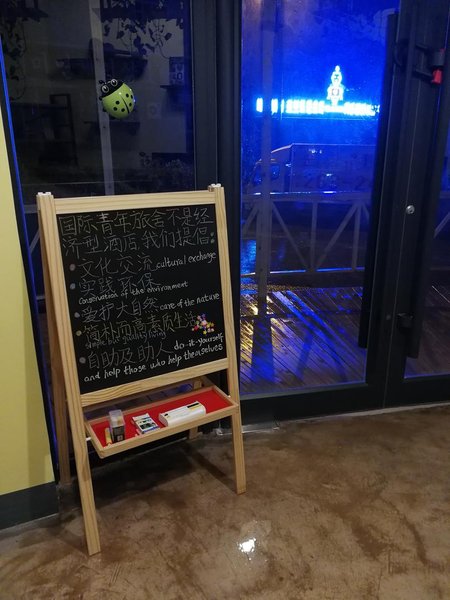 国际青年旅舍不是经
济型酒店,我们提倡:
文化交流 cultural exchange
实践环保
Construction of the environment
爱护大自然 care of the nature
简朴而高素质生活
simple but quality living
自助及助人 do-it-yourself
and help those who help themselves